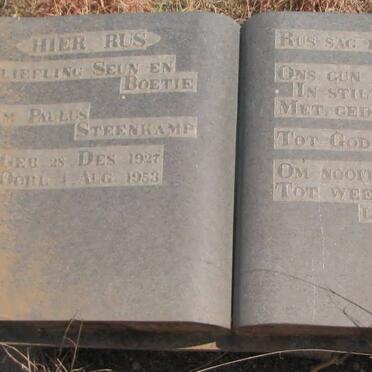 HIER RUS
LIEFLING SEUN EN
BOETIE
PALLUS
STEENKAMP
GEB 28 DES 1927
OORL 1 AUG 1953
RUS SAG
ONS GUN
IN STIL
MET GED
TOT GOD
OM NOOIT
TOT WEE